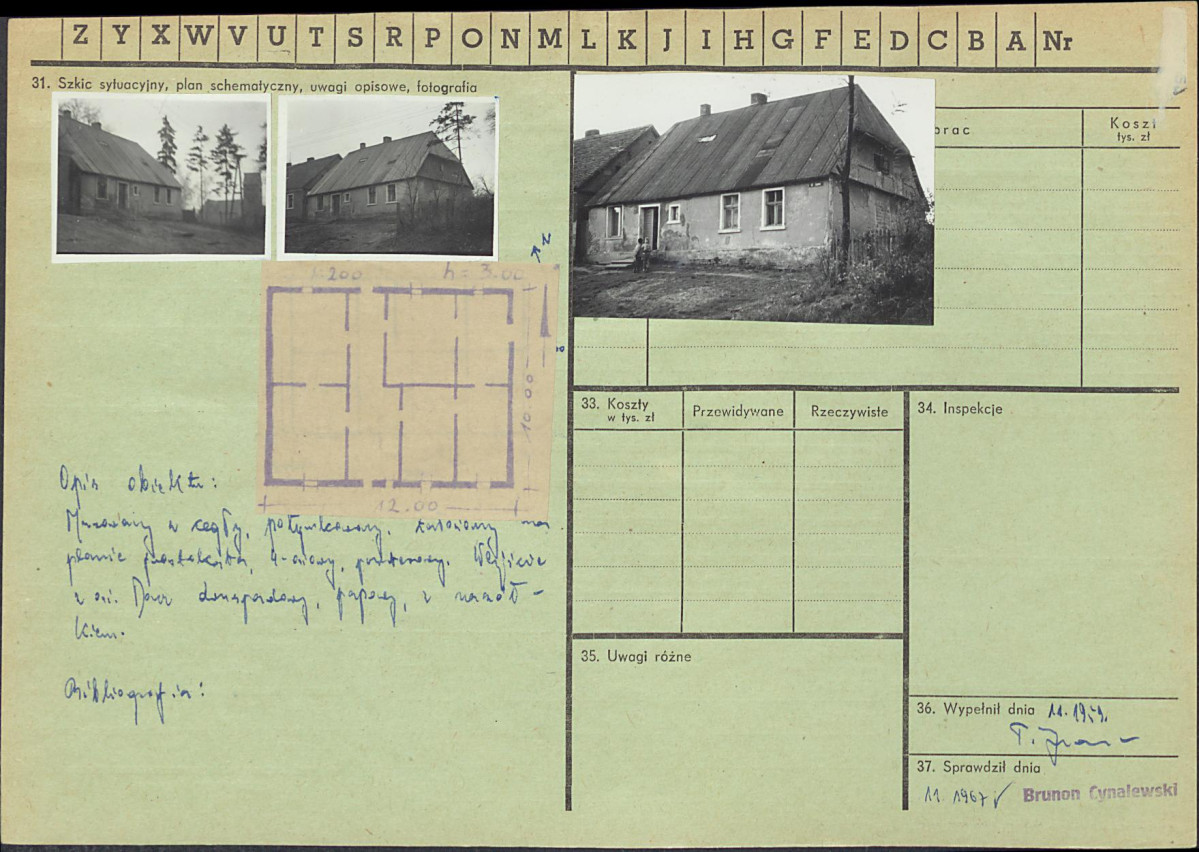 Z Y X W V U T S R P O N M L K J I H G F E D C B A Nr
31. Szkic sytuacyjny, plan schematyczny, uwagi opisowe, fotografia
1:200 h = 3.00
N
10.00
12.00
Opis obiektu:
Murowany z cegły, potynkowany, założony na
planie prostokąta, 4-osiowy, parterowy. Wejście
z osi. Dach dwuspadowy, papowy, z naczół-
kiem.
Bibliografia:
prac
Koszt
tys. zł
33. Koszty
w tys. zł
Przewidywane
Rzeczywiste
34. Inspekcje
35. Uwagi różne
36. Wypełnił dnia 11.1959.
37. Sprawdził dnia
11. 1967 Brunon Cynalewski